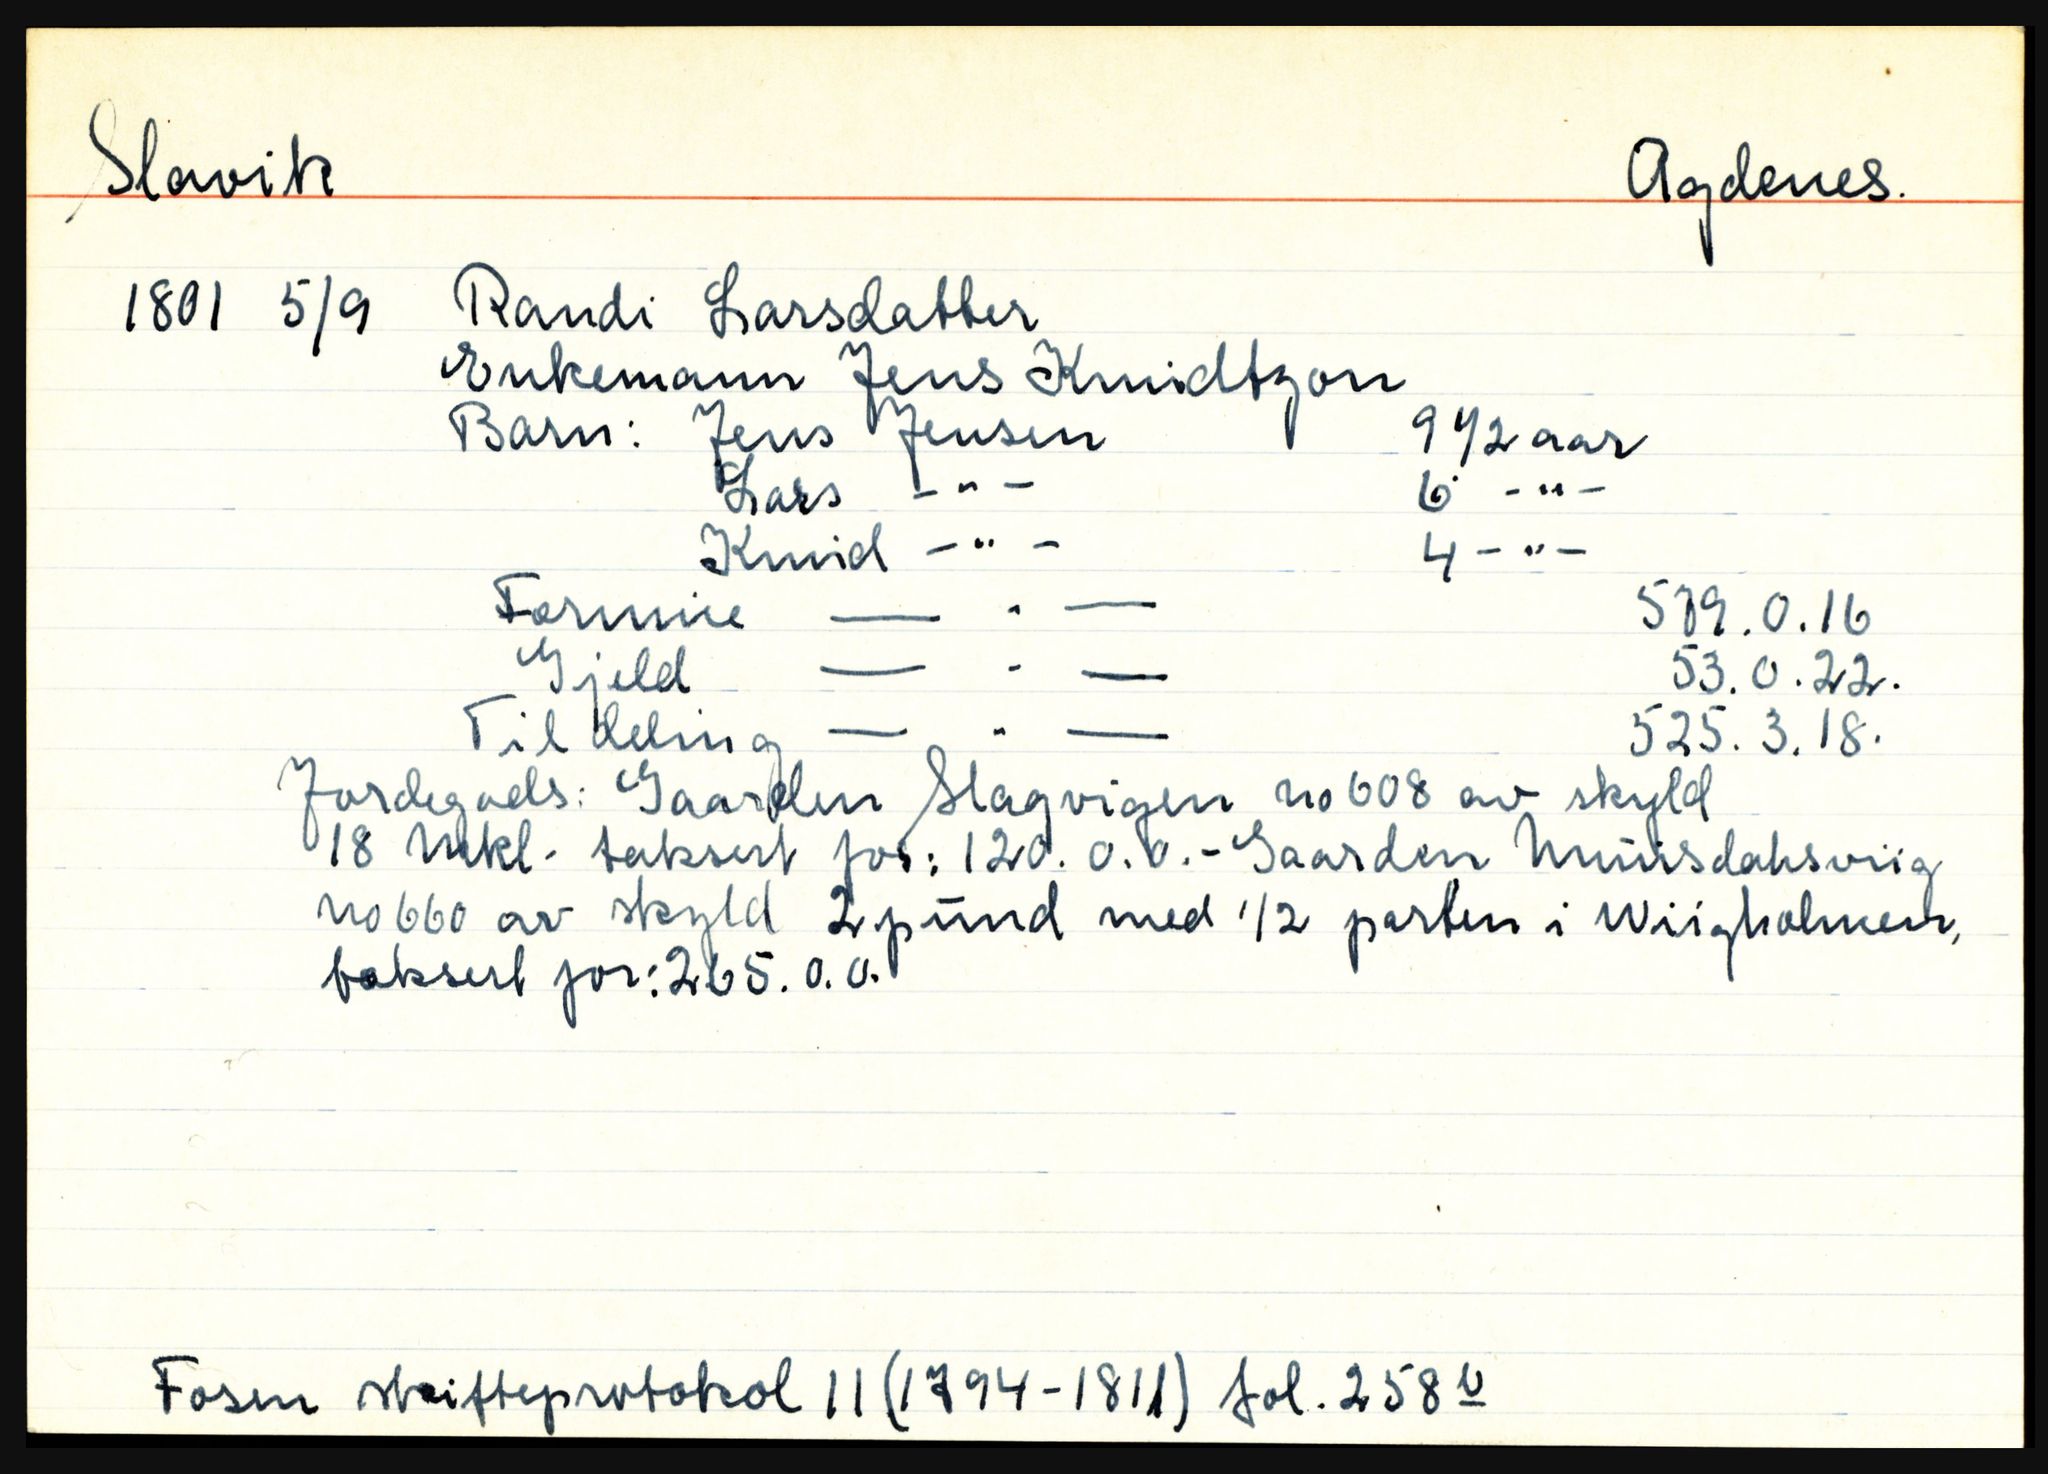 Slavik Agdenes.
1801 5/9 Randi Larsdatter
Enkemann Jens Knudtzon
Barn: Jens Jensen 9 1/2 aar
Lars - " - 6 - " -
Knud - " - 4 - " -
Formue — " — 579.0.16
Gjeld — " — 53.0.22.
Til deling — " — 525.3.18.
Jordegods: Gaarden Slagvigen no 608 av skyld
18 Mkl. taksert for: 120.0.0. - Gaarden
no 660 av skyld 2 pund med 1/2 parten i Wiigholmen,
taksert for: 265.0.0.
Fosen skifteprotokol 11 (1794-1811) fol. 258 b